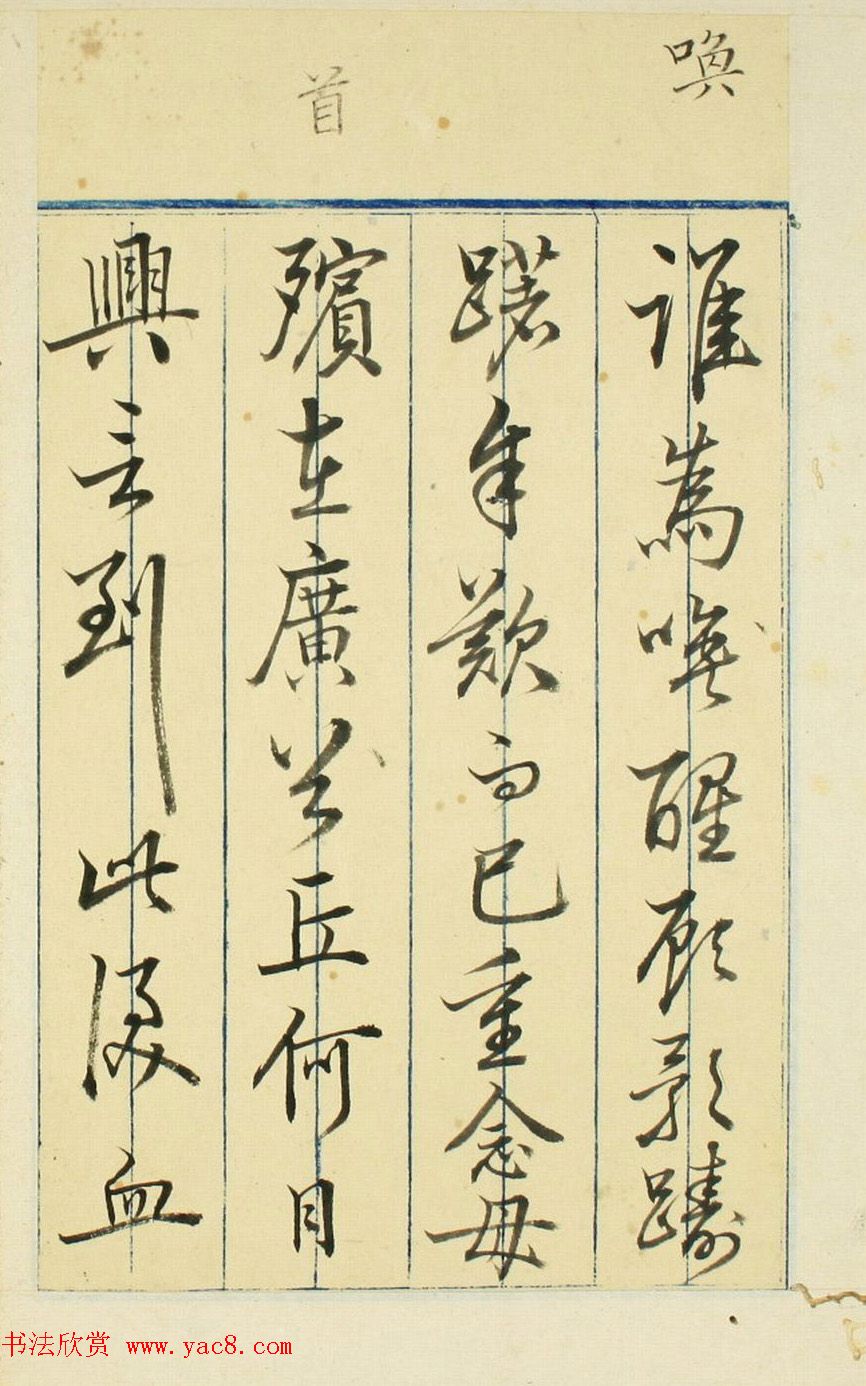 喚
首
誰為喚醒顧影躊
躇自歎而已重念母
殯在廣兆丘何日
興言到此淚血
书法欣赏 www.yac8.com